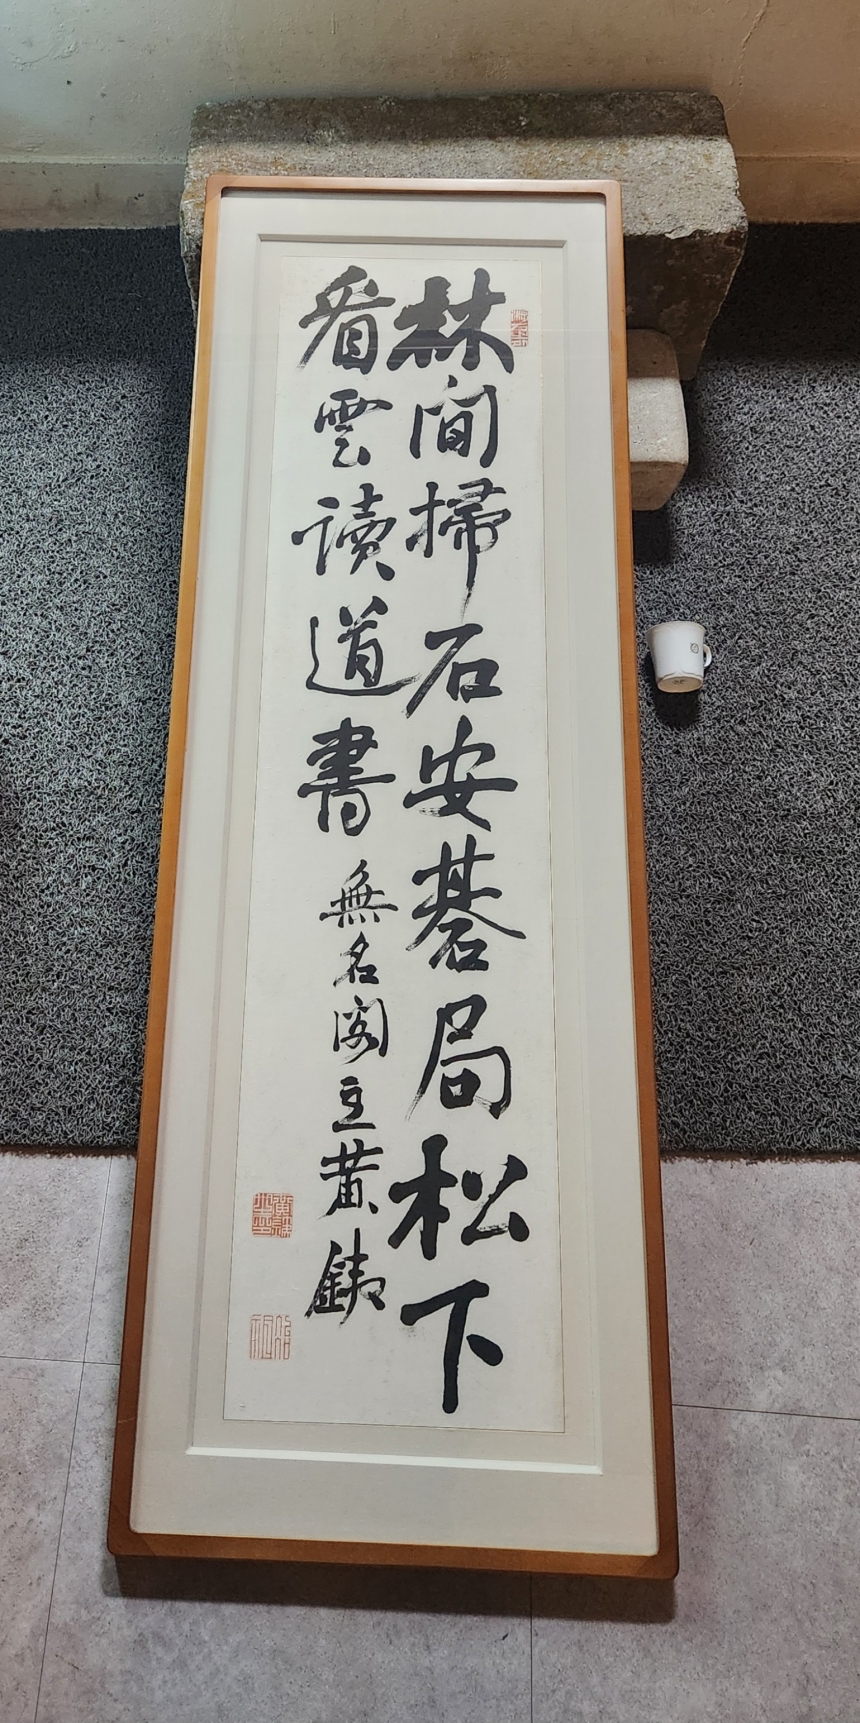 林間掃石安碁局松下
看雲讀道書 無名閣主黃鐵